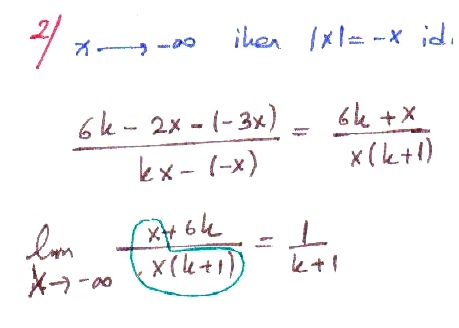 2/ x → -∞ iken |x| = -x id.
(6k - 2x - (-3x)) / (kx - (-x)) = (6k + x) / (x(k+1))
lim x→-∞ (x + 6k) / (x(k+1)) = 1 / (k+1)